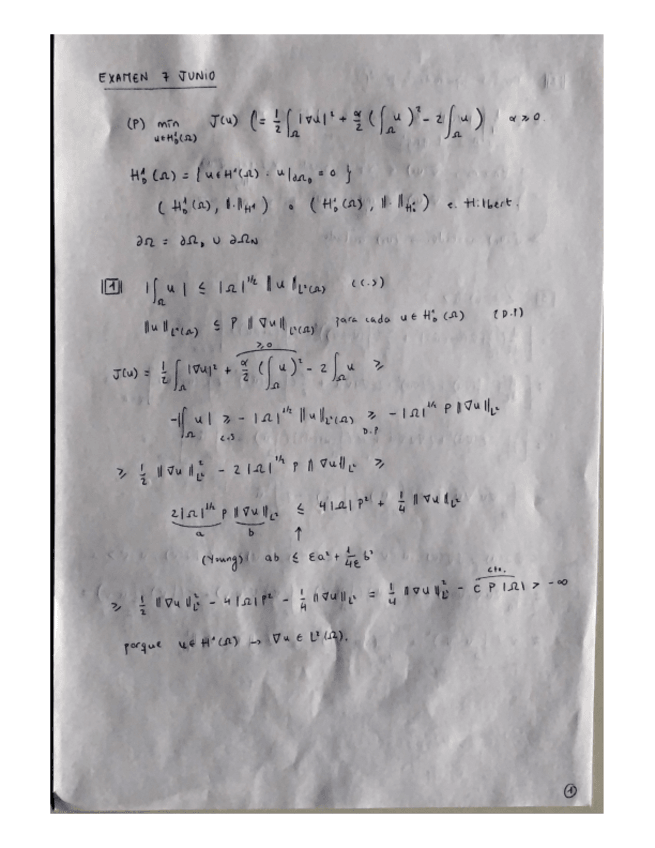 EXAMEN 7 JUNIO
(P) min J(u) (= 1/2 ∫_Ω |∇u|² + α/2 (∫_Ω u)² - 2∫_Ω u), α ≥ 0.
u∈H¹_D(Ω)
H¹_D(Ω) = {u∈H¹(Ω) : u|_∂Ω_D = 0}
(H¹_D(Ω), ||·||_H¹) o (H¹_D(Ω), ||·||_H¹₀) e. Hilbert.
∂Ω = ∂Ω_D ∪ ∂Ω_N
1 |∫_Ω u| ≤ |Ω|^1/2 ||u||_L²(Ω) (C.S)
||u||_L²(Ω) ≤ P ||∇u||_L²(Ω) para cada u∈H¹_D(Ω) (D.P)
≥0
J(u) = 1/2 ∫_Ω |∇u|² + α/2 (∫_Ω u)² - 2∫_Ω u ≥
-|∫_Ω u| ≥ -|Ω|^1/2 ||u||_L²(Ω) ≥ -|Ω|^1/2 P ||∇u||_L²
C.S D.P
≥ 1/2 ||∇u||²_L² - 2|Ω|^1/2 P ||∇u||_L² ≥
2|Ω|^1/2 P ||∇u||_L² ≤ 4|Ω|P² + 1/4 ||∇u||²_L²
a b ↑
(Young) ab ≤ εa² + 1/4ε b²
cte.
≥ 1/2 ||∇u||²_L² - 4|Ω|P² - 1/4 ||∇u||²_L² = 1/4 ||∇u||²_L² - C P |Ω| > -∞
porque u∈H¹(Ω) → ∇u ∈ L²(Ω).
1